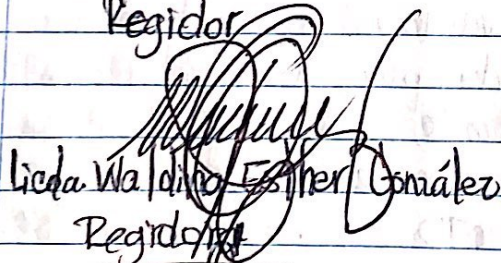 Regidor
Licda. Waldina Esther González
Regidora